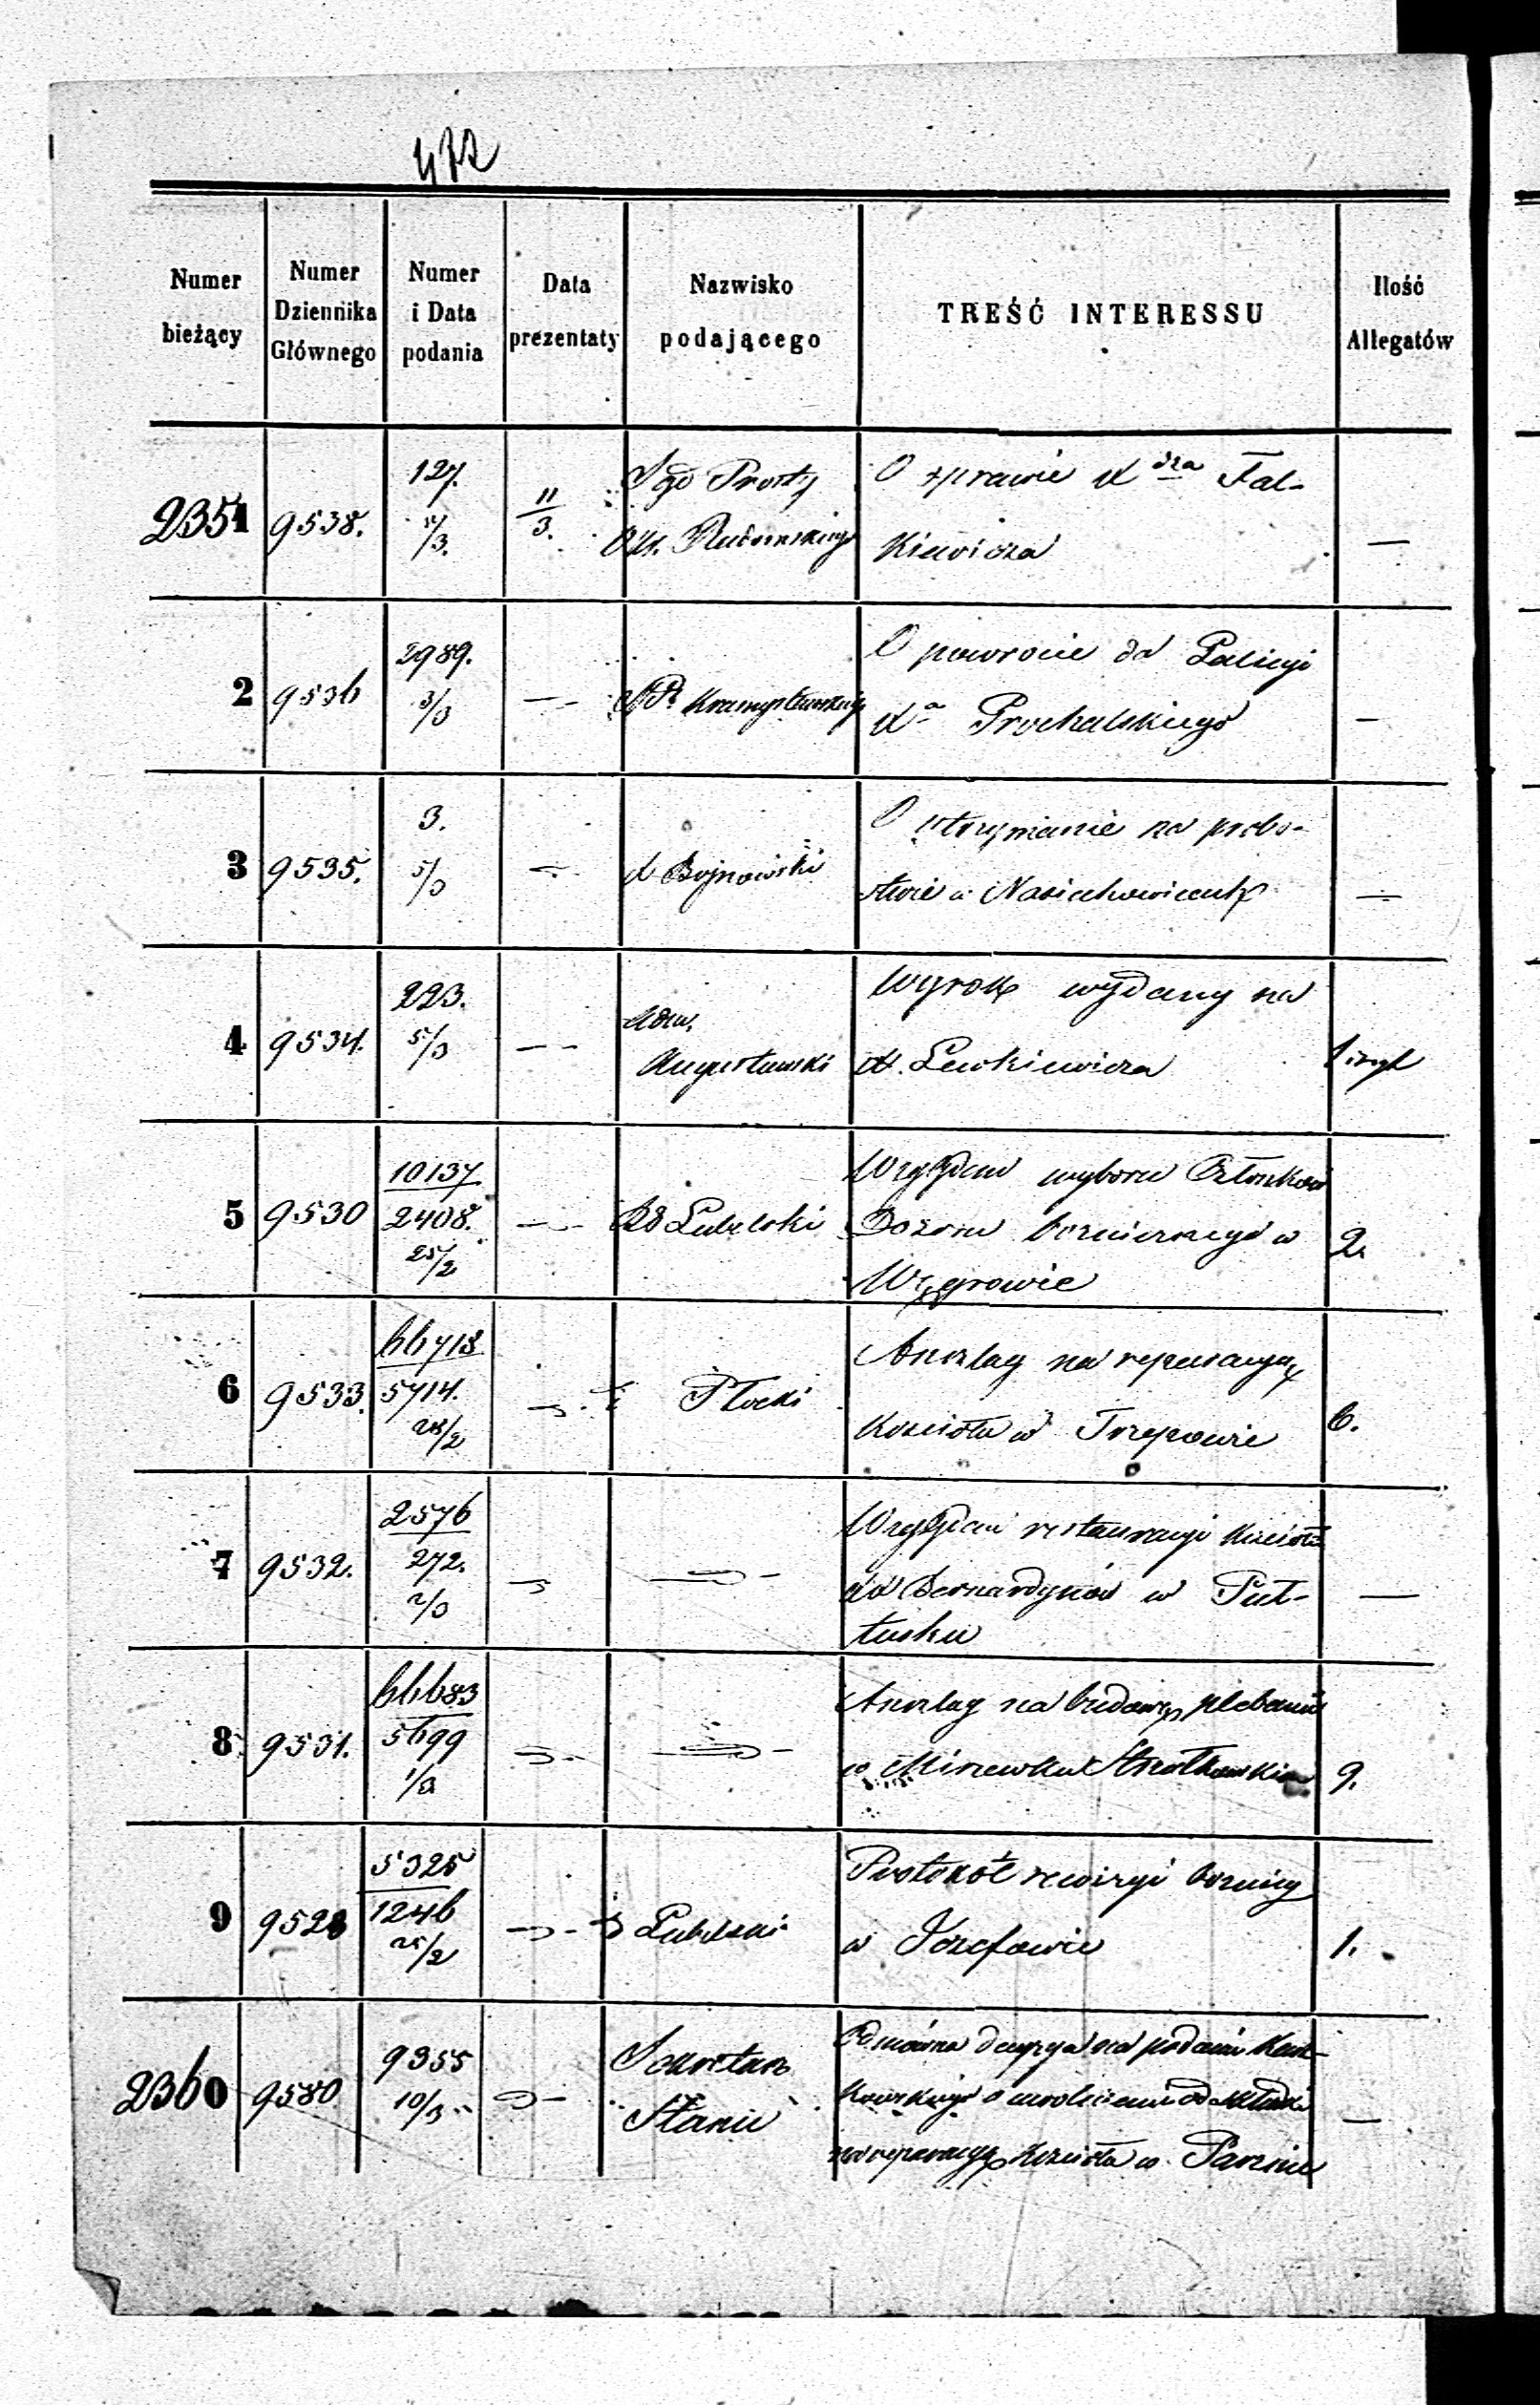 472
Numer bieżący
Numer Dziennika Głównego
Numer i Data podania
Data prezentaty
Nazwisko podającego
TREŚĆ INTERESSU
Ilość Allegatów
2351 9538. 127. 11/3.
O sprawie Xdza Fal-
kiewicza —
2 9536 2989. 3/3 — -
O powrocie do Galicyi
Xa Prochalskiego —
3 9535. 3. 5/3 — X Bojnowski
O utrzymanie na probo-
stwie w —
4 9534. 223. 5/3 — —
Adm.
Augustowski
Wyrok wydany na
X. Lewkiewicza
5 9530 10137
2408. 25/2 — RG Lubelski
Względem wyboru Członków
Dozoru bożniczego w 2.
Węgrowie
6 9533. 66718
5714. 28/2 Płocki
Anszlag na reparacyą
Kościoła w Trzepowie 6.
7 9532. 2576
272. 2/3
Względem restauracyi Kościoła
XX Bernardynów w Puł-
tusku —
8 9531. 66683
5699 1/3
Anszlag na budowę plebanii
w Miszewku Strzałkowskim 9.
9 9528 5325
1246 25/2 Lubelski
Protokół rewizyi bożnicy
w Józefowie 1.
2360 9580 9355
10/3
Sekretarz
Stanu
Odmówna decyzya na podanie
o uwolnienie od składki
na reparacyą Kościoła w Parznie —